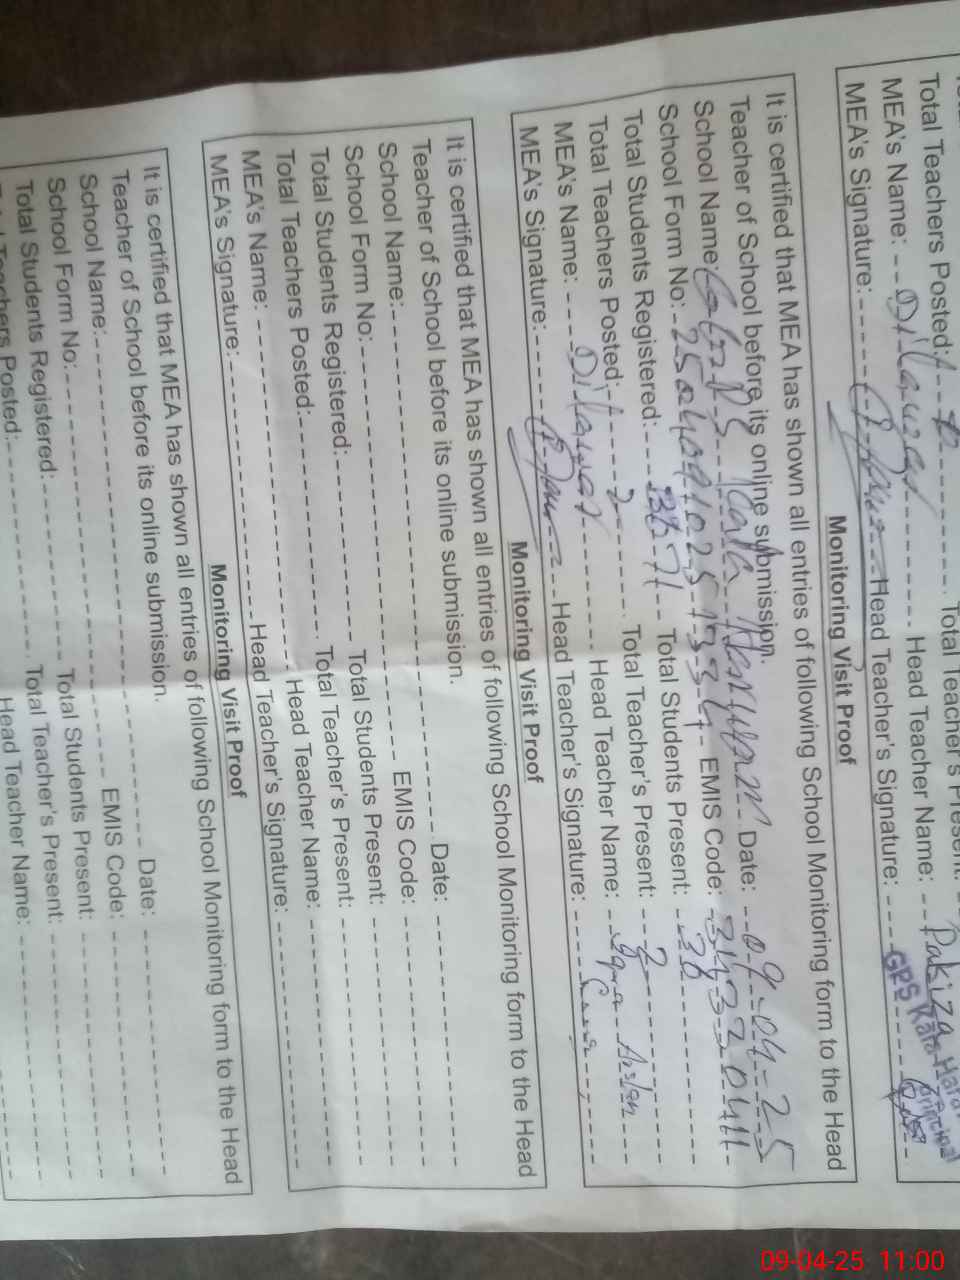 Total Teachers Posted: Total Teacher's Present:
MEA's Name: Dilawar Head Teacher Name: Pakiza
MEA's Signature: Head Teacher's Signature:
GPS
Principal
Monitoring Visit Proof
It is certified that MEA has shown all entries of following School Monitoring form to the Head
Teacher of School before its online submission.
School Name: Date: 09-04-25
School Form No: EMIS Code:
Total Students Registered: Total Students Present: 38
Total Teachers Posted: 2 Total Teacher's Present: 2
MEA's Name: Dilawar Head Teacher Name: Iqra Arslan
MEA's Signature: Head Teacher's Signature:
Monitoring Visit Proof
It is certified that MEA has shown all entries of following School Monitoring form to the Head
Teacher of School before its online submission.
School Name: Date:
School Form No: EMIS Code:
Total Students Registered: Total Students Present:
Total Teachers Posted: Total Teacher's Present:
MEA's Name: Head Teacher Name:
MEA's Signature: Head Teacher's Signature:
Monitoring Visit Proof
It is certified that MEA has shown all entries of following School Monitoring form to the Head
Teacher of School before its online submission.
School Name: Date:
School Form No: EMIS Code:
Total Students Registered: Total Students Present:
Teachers Posted: Total Teacher's Present:
Head Teacher Name:
09-04-25 11:00